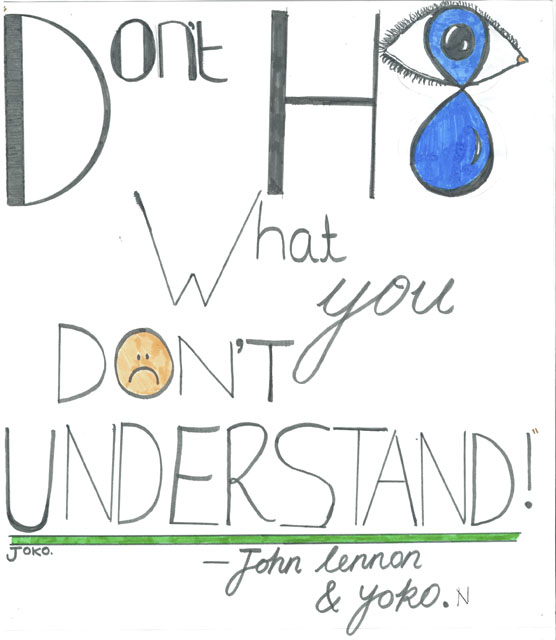 Don't H8
What
you
DON'T
UNDERSTAND!"
JOKO.
- John lennon
& yoko. N